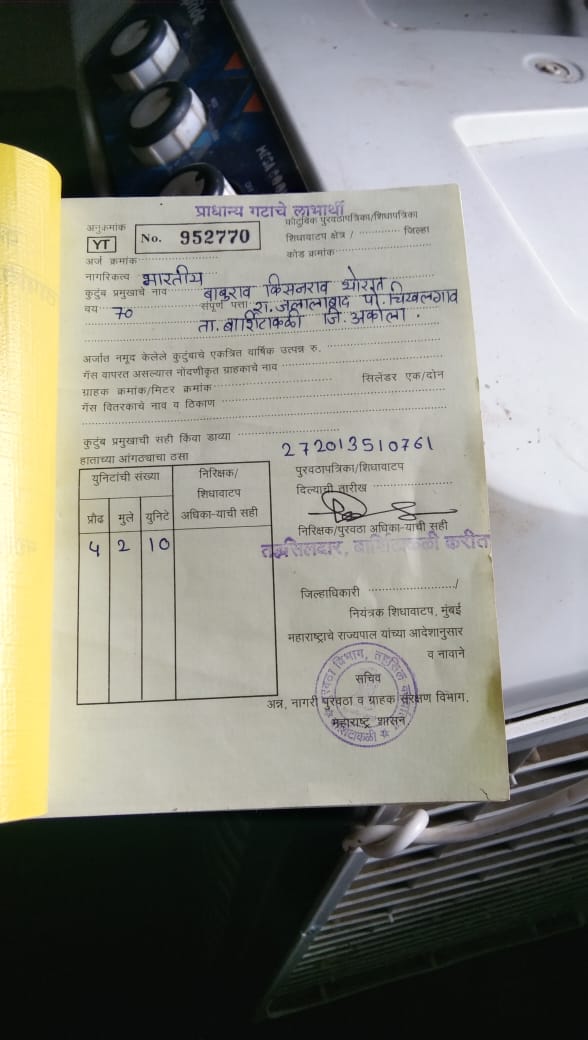 प्राधान्य गटाचे लाभार्थी
अनुक्रमांक
YT
No. 952770
कौटुंबिक पुरवठापत्रिका/शिधापत्रिका
शिधावाटप क्षेत्र / जिल्हा
कोड क्रमांक
अर्ज क्रमांक
नागरिकत्व भारतीय
कुटुंब प्रमुखाचे नाव बाबुराव किसनराव थोरात
वय 70 संपूर्ण पत्ता रा. जलालाबाद पो. चिखलगाव
ता. बार्शिटाकळी जि. अकोला.
अर्जात नमूद केलेले कुटुंबाचे एकत्रित वार्षिक उत्पन्न रु.
गॅस वापरत असल्यास नोदणीकृत ग्राहकाचे नाव
ग्राहक क्रमांक/मिटर क्रमांक सिलेंडर एक/दोन
गॅस वितरकाचे नाव व ठिकाण
कुटुंब प्रमुखाची सही किंवा डाव्या
हाताच्या आंगठ्याचा ठसा
272013510761
युनिटांची संख्या
निरिक्षक/
शिधावाटप
अधिका-याची सही
प्रौढ मुले युनिटे
५ 2 10
पुरवठापत्रिका/शिधावाटप
दिल्याची तारीख
निरिक्षक/पुरवठा अधिका-याची सही
तहसिलदार, बार्शिटाकळी करीता
जिल्हाधिकारी /
नियंत्रक शिधावाटप, मुंबई
महाराष्ट्राचे राज्यपाल यांच्या आदेशानुसार
व नावाने
सचिव
अन्न, नागरी पुरवठा व ग्राहक संरक्षण विभाग,
महाराष्ट्र शासन
पुरवठा विभाग, तहसिल